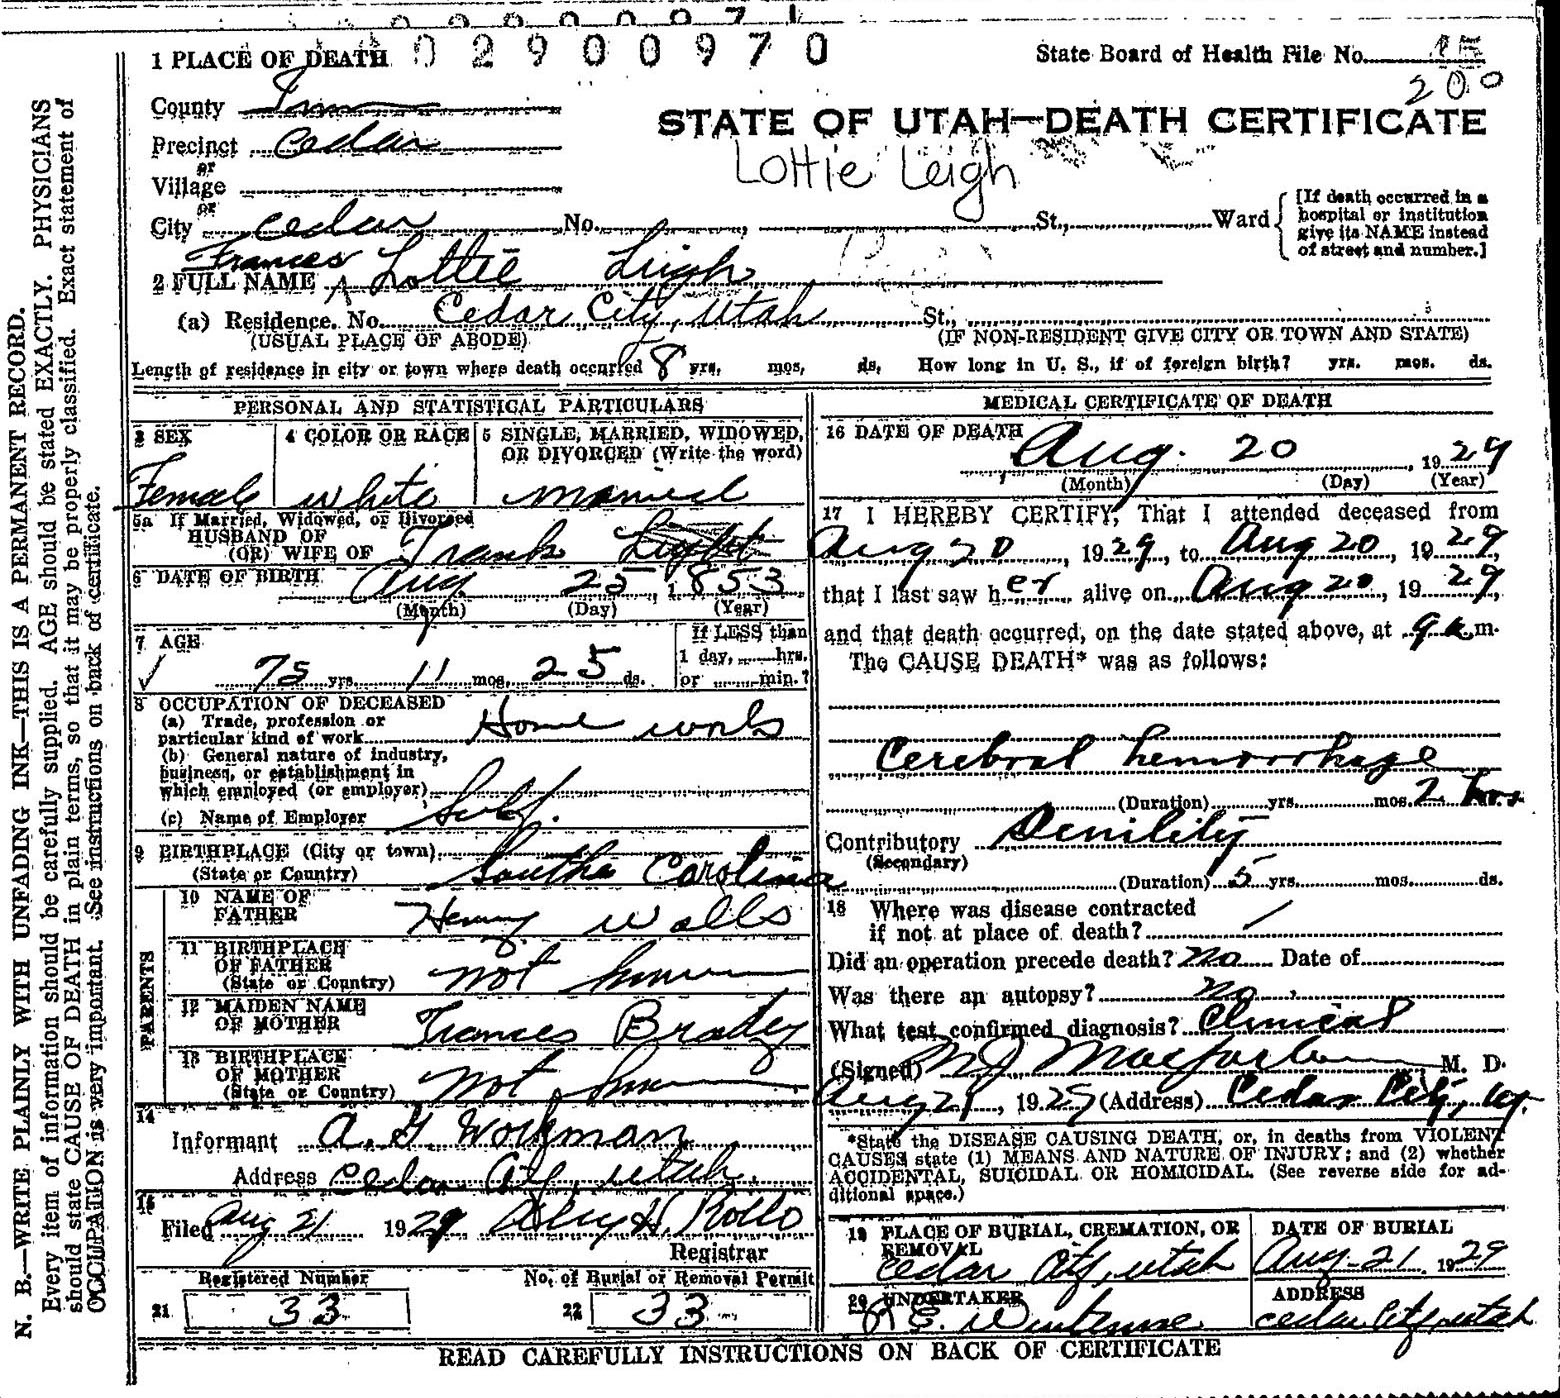 02900971
02900970
1 PLACE OF DEATH
State Board of Health File No. 15
200
County Iron
STATE OF UTAH—DEATH CERTIFICATE
Precinct Cedar
or
Lottie Leigh
Village
or
City Cedar No. , St., Ward
[If death occurred in a
hospital or institution
give its NAME instead
of street and number.]
Frances
2 FULL NAME Lottie Leigh
(a) Residence. No. Cedar City, Utah St.,
(USUAL PLACE OF ABODE) (IF NON-RESIDENT GIVE CITY OR TOWN AND STATE)
Length of residence in city or town where death occurred 8 yrs. mos. ds. How long in U. S., if of foreign birth? yrs. mos. ds.
PERSONAL AND STATISTICAL PARTICULARS
3 SEX 4 COLOR OR RACE 5 SINGLE, MARRIED, WIDOWED,
OR DIVORCED (Write the word)
Female white married
5a If Married, Widowed, or Divorced
HUSBAND OF
(OR) WIFE OF Frank
6 DATE OF BIRTH Aug. 25, 1853
(Month) (Day) (Year)
7 AGE
If LESS than
1 day, hrs.
75 yrs. 11 mos. 25 ds. or min.?
8 OCCUPATION OF DECEASED
(a) Trade, profession or
particular kind of work Home work
(b) General nature of industry,
business, or establishment in
which employed (or employer)
(c) Name of Employer Self.
9 BIRTHPLACE (City or town)
(State or Country) South Carolina
PARENTS
10 NAME OF
FATHER Henry Walls
11 BIRTHPLACE
OF FATHER
(State or Country) not known
12 MAIDEN NAME
OF MOTHER Frances Bradey
13 BIRTHPLACE
OF MOTHER
(State or Country) not known
14
Informant A. G. Workman
Address Cedar City, Utah.
15
Filed Aug 21 1929 Rollo
Registrar
Registered Number No. of Burial or Removal Permit
21 33 22 33
MEDICAL CERTIFICATE OF DEATH
16 DATE OF DEATH Aug. 20, 1929
(Month) (Day) (Year)
17 I HEREBY CERTIFY, That I attended deceased from
Aug 20, 1929, to Aug 20, 1929,
that I last saw her alive on Aug 20, 1929,
and that death occurred, on the date stated above, at 9 a.m.
The CAUSE DEATH* was as follows:
Cerebral hemorrhage
(Duration) yrs. mos. 2 hrs
Contributory Senility
(Secondary)
(Duration) 5 yrs. mos. ds.
18 Where was disease contracted
if not at place of death?
Did an operation precede death? no Date of
Was there an autopsy? no.
What test confirmed diagnosis? Clinical
(Signed) M J Macfarlane M. D.
Aug 21, 1929 (Address) Cedar City, Ut.
*State the DISEASE CAUSING DEATH, or, in deaths from VIOLENT
CAUSES state (1) MEANS AND NATURE OF INJURY; and (2) whether
ACCIDENTAL, SUICIDAL OR HOMICIDAL. (See reverse side for ad-
ditional space.)
19 PLACE OF BURIAL, CREMATION, OR
REMOVAL
Cedar City, Utah
DATE OF BURIAL
Aug. 21 1929
20 UNDERTAKER
ADDRESS
Cedar City, Utah
READ CAREFULLY INSTRUCTIONS ON BACK OF CERTIFICATE
N. B.—WRITE PLAINLY WITH UNFADING INK—THIS IS A PERMANENT RECORD.
Every item of information should be carefully supplied. AGE should be stated EXACTLY. PHYSICIANS
should state CAUSE OF DEATH in plain terms, so that it may be properly classified. Exact statement of
OCCUPATION is very important. See instructions on back of certificate.